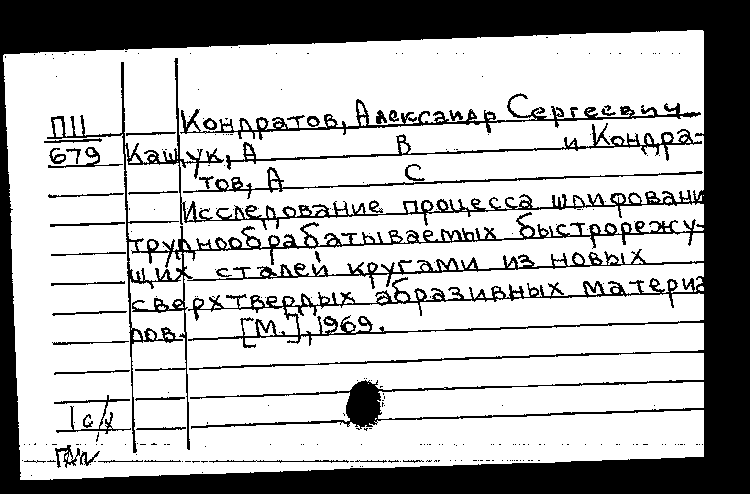 Кондратов, Александр Сергеевич
П11
679 Кащук, А В и Кондра-
тов, А С
Исследование процесса шлифовани
труднообрабатываемых быстрорежу-
щих сталей кругами из новых
сверхтвердых абразивных материа
лов. [М.], 1969.